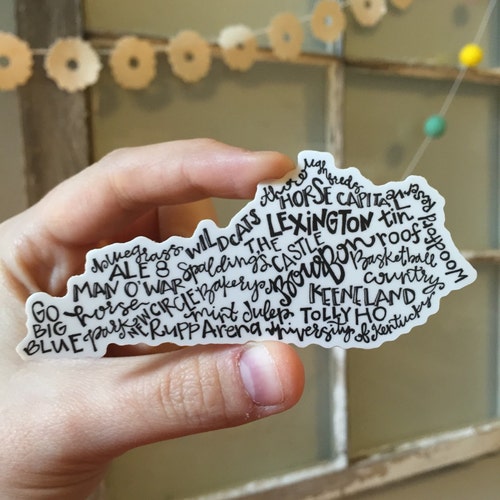 thoroughbreds
HORSE CAPITAL
LEXINGTON
tin
roof
Keeneland
Woodford reserve
WILDCATS
THE
CASTLE
Bourbon
Basketball
country
bluegrass
ALE 8
Spaldings
Bakery
MAN O' WAR
KEENELAND
TOLLY HO
GO
BIG
BLUE
horse
park
NEW CIRCLE
mint Julep
Rupp Arena
University
of Kentucky